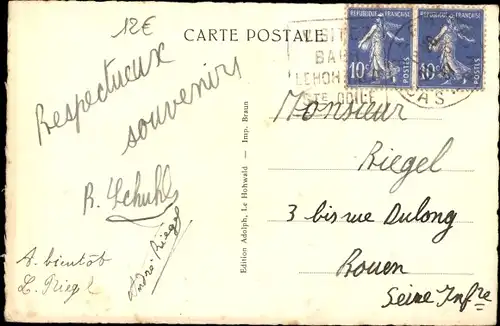 12€
CARTE POSTALE
RÉPUBLIQUE FRANÇAISE
10c
POSTES
RÉPUBLIQUE FRANÇAISE
10c
POSTES
BAR
LE HOH
STE ODILE
Respectueux
souvenirs
R. Schuhl
André Riegel
A bientôt
L. Riegel
Edition Adolph, Le Hohwald — Imp. Braun
Monsieur
Riegel
3 bis rue Dulong
Rouen
Seine Infre